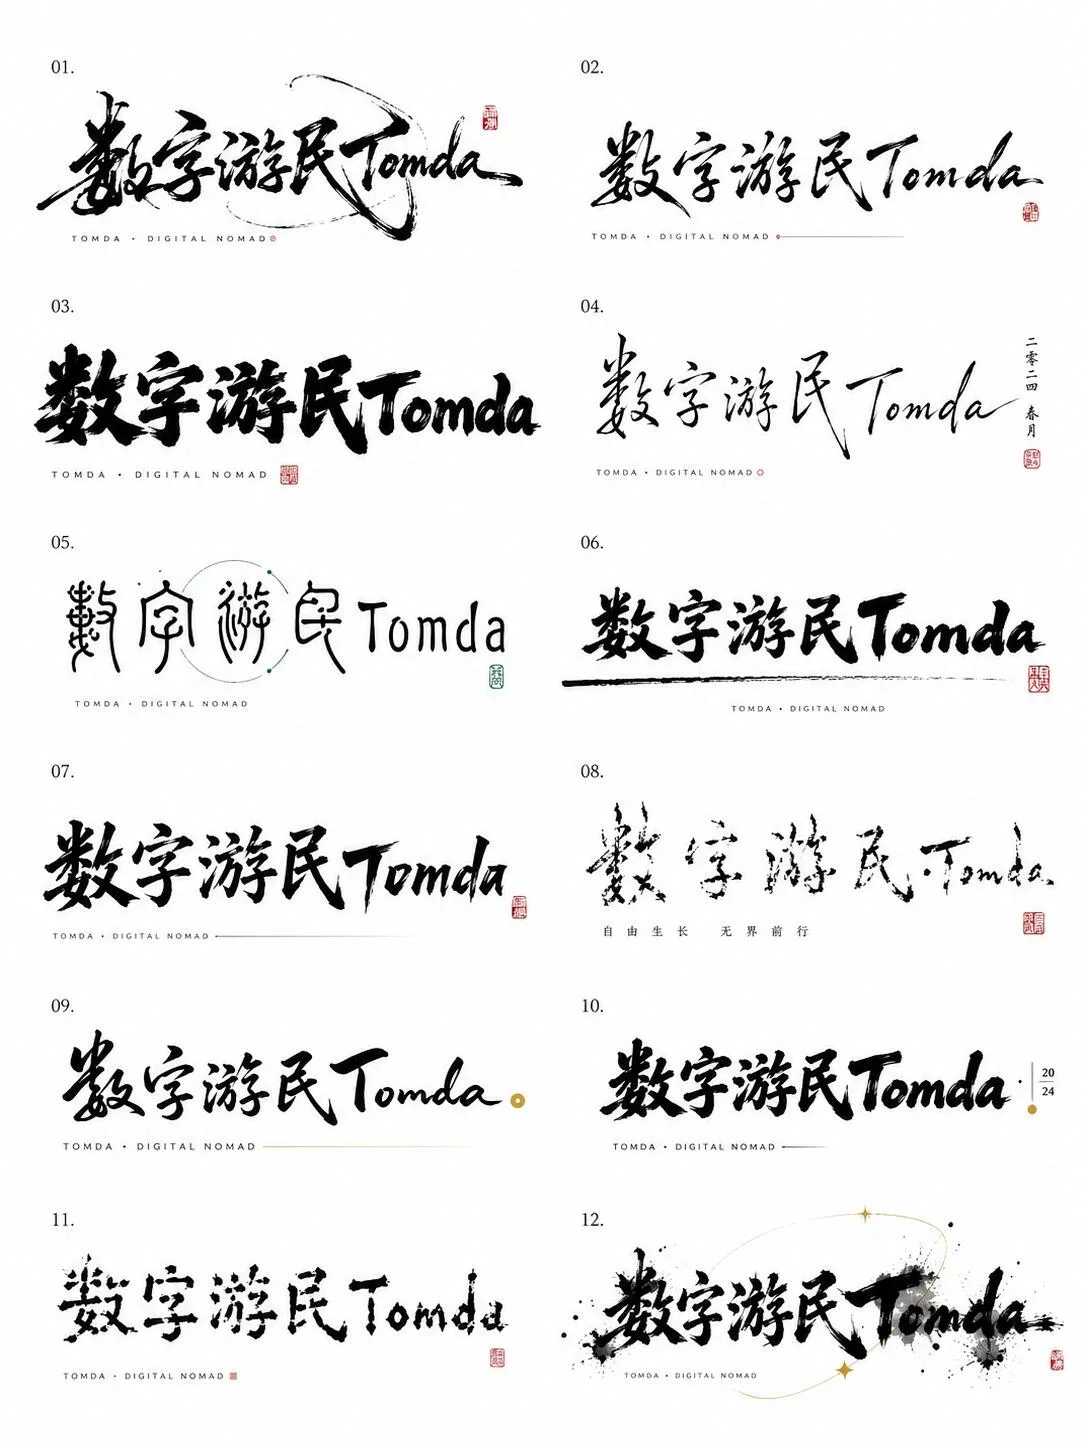 01.
数字游民Tomda
TOMDA • DIGITAL NOMAD
02.
数字游民Tomda
TOMDA • DIGITAL NOMAD
03.
数字游民Tomda
TOMDA • DIGITAL NOMAD
04.
数字游民Tomda
二零二四 春月
TOMDA • DIGITAL NOMAD
05.
數字游民Tomda
TOMDA • DIGITAL NOMAD
06.
数字游民Tomda
TOMDA • DIGITAL NOMAD
07.
数字游民Tomda
TOMDA • DIGITAL NOMAD
08.
数字游民·Tomda
自由生长 无界前行
09.
数字游民Tomda
TOMDA • DIGITAL NOMAD
10.
数字游民Tomda
20
24
TOMDA • DIGITAL NOMAD
11.
数字游民Tomda
TOMDA • DIGITAL NOMAD
12.
数字游民Tomda
TOMDA • DIGITAL NOMAD